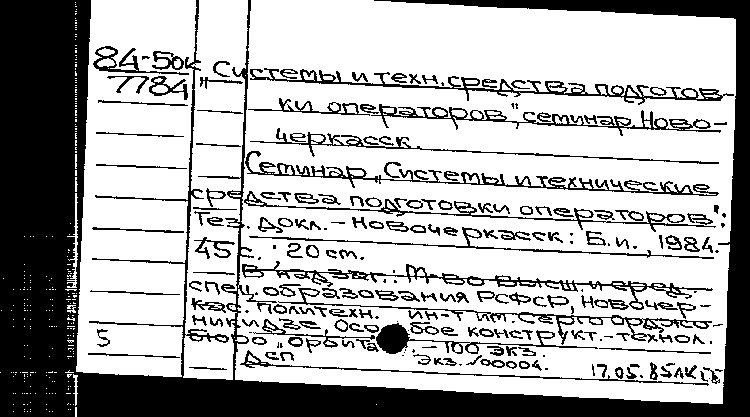 84-5ок
7784
"Системы и техн. средства подготов-
ки операторов", семинар. Ново-
черкасск.
Семинар „Системы и технические
средства подготовки операторов":
Тез. докл. - Новочеркасск: Б.и., 1984.-
45 с. ; 20 см.
В надзаг.: М-во высш. и сред.
спец. образования РСФСР, Новочер-
кас. политехн. ин-т им. Серго Орджо-
никидзе, Особое конструкт.-технол.
бюро „Орбита". - 100 экз.
5
Дсп
экз. √00004.
17.05.85